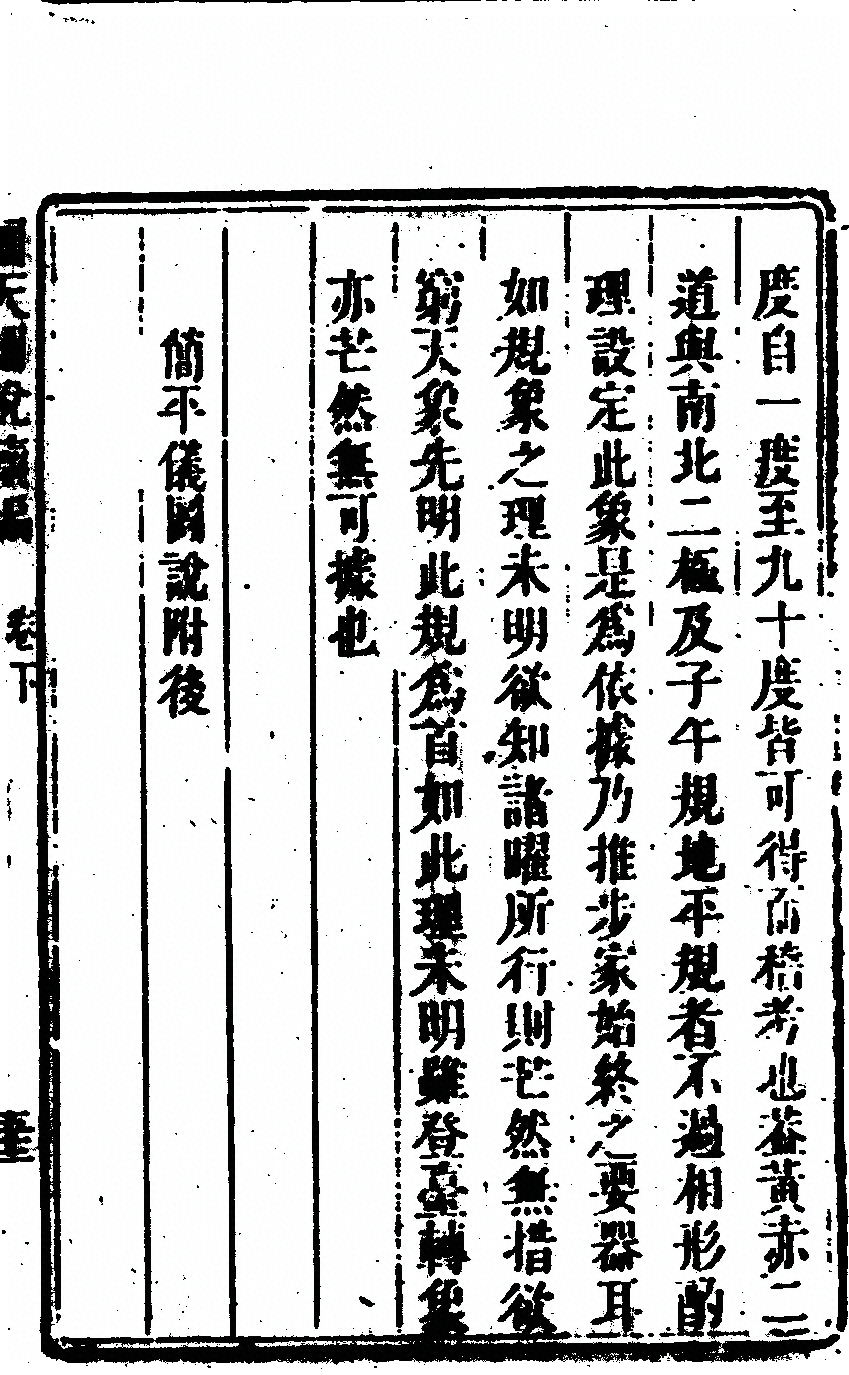 度自一度至九十度皆可得而稽考也葢黃赤二
道與南北二極及子午規地平規者不過相形酌
理設定此象是爲依據乃推步家始終之要器耳
如規象之理未明欲知諸曜所行則茫然無措欲
窮天象先明此規爲首如此理未明雖登臺轉象
亦茫然無可據也
簡平儀圖說附後
圜天圖說續編
卷下